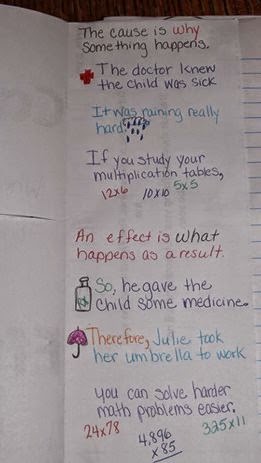 The cause is why
something happens.
The doctor knew
the child was sick
It was raining really
hard.
If you study your
multiplication tables,
12x6 10x10 5x5
An effect is what
happens as a result.
So, he gave the
child some medicine.
Therefore, Julie took
her umbrella to work
you can solve harder
math problems easier.
24x78 4,896 325x11
x85